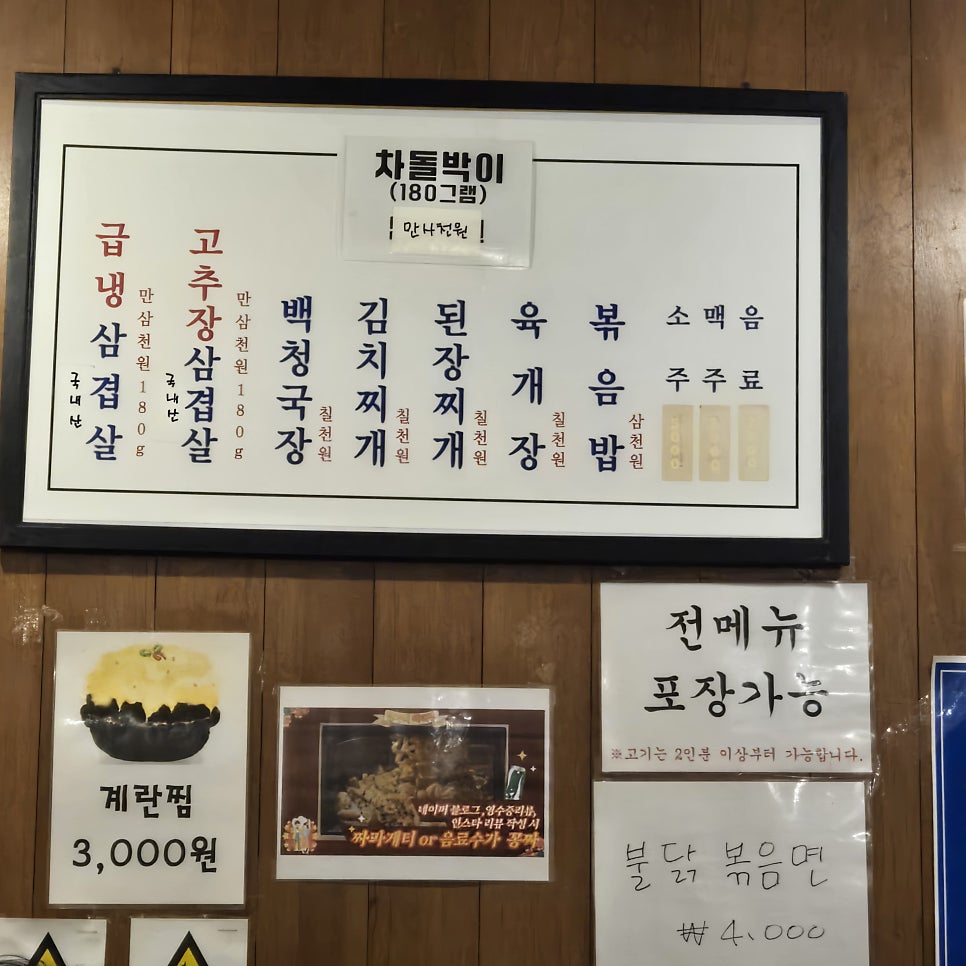 차돌박이
(180그램)
만사천원
급냉삼겹살
국내산
만삼천원180g
고추장삼겹살
국내산
만삼천원180g
백청국장
칠천원
김치찌개
칠천원
된장찌개
칠천원
육개장
칠천원
볶음밥
삼천원
소주
맥주
음료
계란찜
3,000원
네이버 블로그, 영수증리뷰,
인스타 리뷰 작성 시
짜파게티 or 음료수가 공짜
전메뉴
포장가능
※고기는 2인분 이상부터 가능합니다.
불닭 볶음면
₩4,000